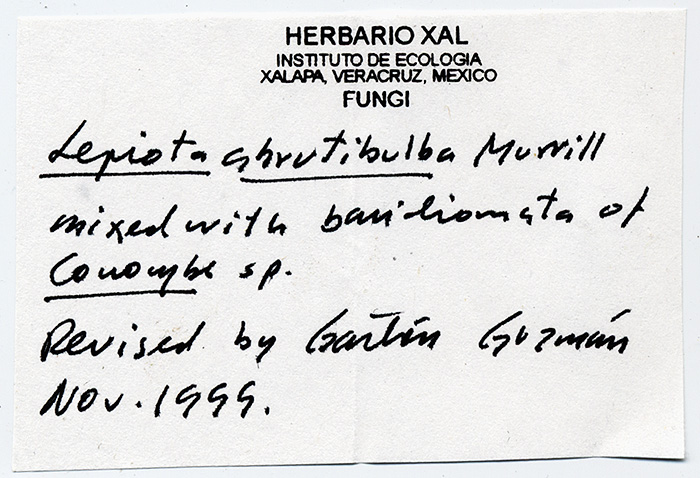 HERBARIO XAL
INSTITUTO DE ECOLOGIA
XALAPA, VERACRUZ, MEXICO
FUNGI
Lepiota abrutibulba Murrill
mixed with basidiomata of
Conocybe sp.
Revised by Gastón Guzmán
Nov. 1999.